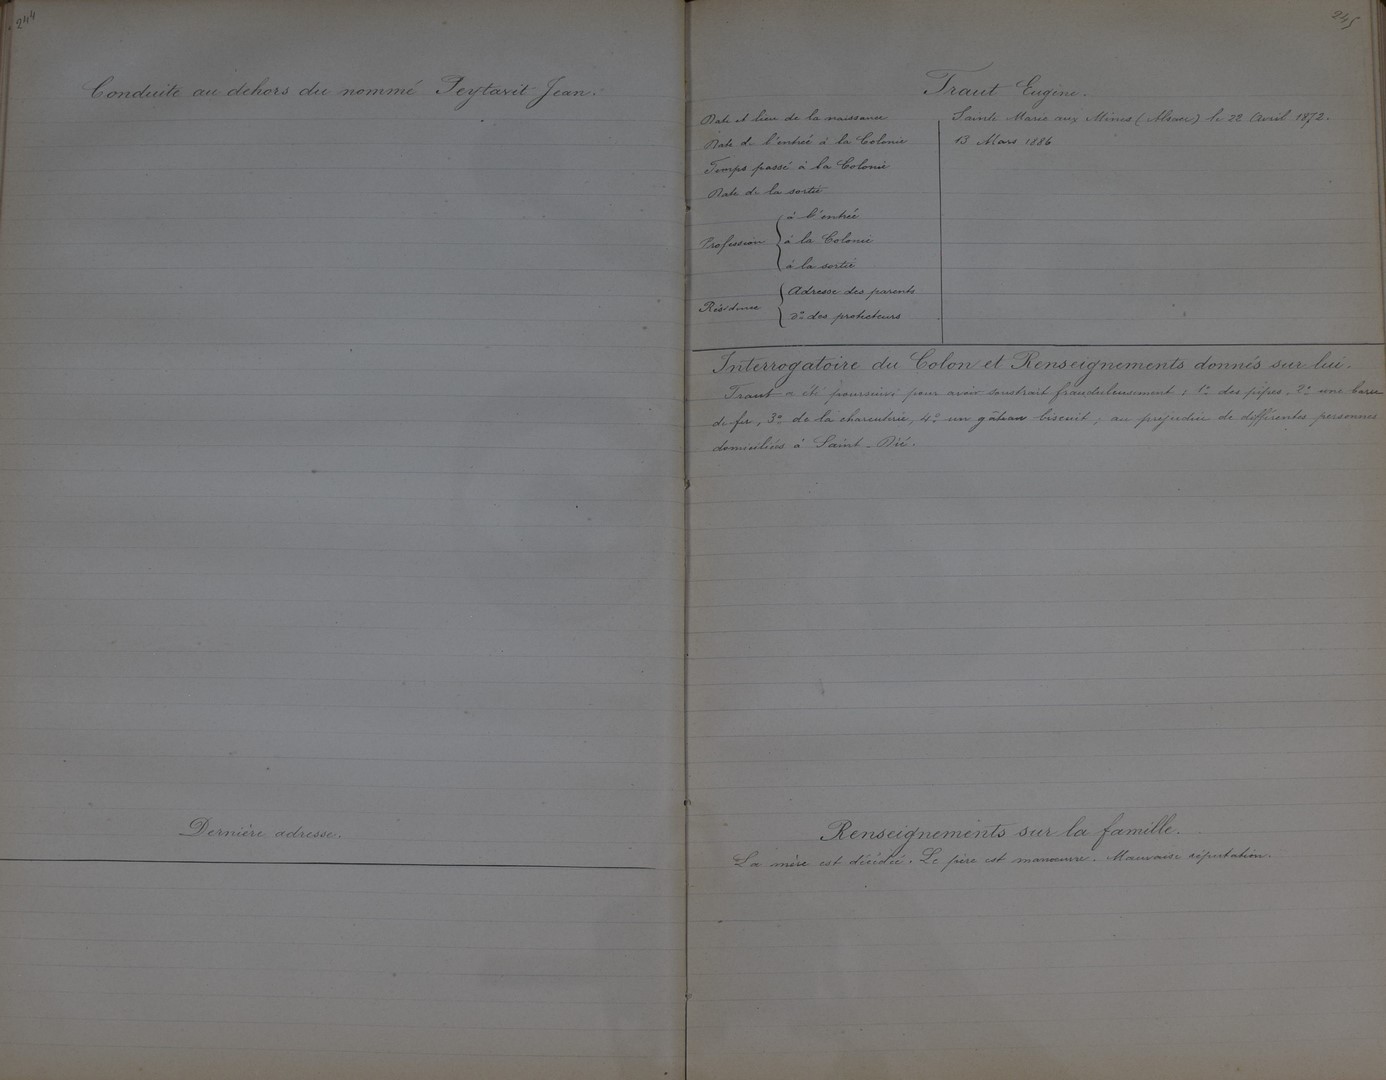 244
Conduite au dehors du nommé Peytavit Jean.
Dernière adresse.
245
Traut Eugène.
Date et lieu de la naissance Sainte Marie aux Mines (Alsace) le 22 Avril 1872.
Date de l'entrée à la Colonie 13 Mars 1886
Temps passé à la Colonie
Date de la sortie
Profession
à l'entrée
à la Colonie
à la sortie
Résidence
Adresse des parents
do des protecteurs
Interrogatoire du Colon et Renseignements donnés sur lui.
Traut a été poursuivi pour avoir soustrait frauduleusement : 1o des pipes, 2o une barre
de fer, 3o de la charcuterie, 4o un gâteau biscuit, au préjudice de différentes personnes
domiciliées à Saint-Dié.
Renseignements sur la famille.
La mère est décédée. Le père est manœuvre. Mauvaise réputation.